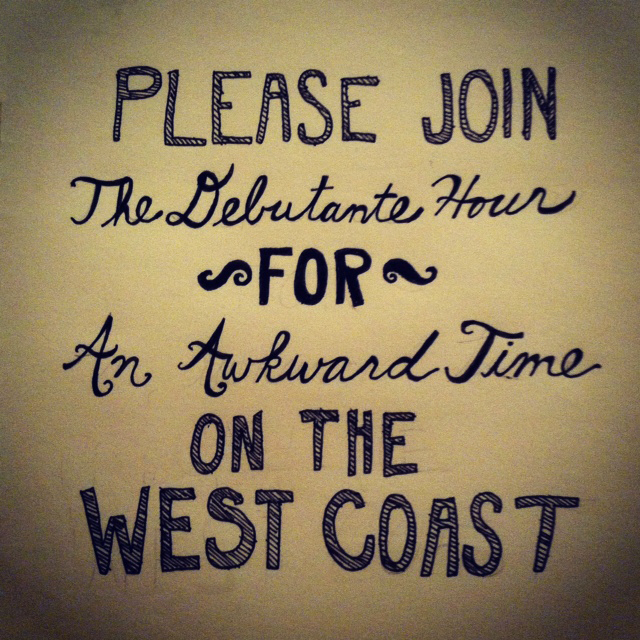 PLEASE JOIN
The Debutante Hour
FOR
An Awkward Time
ON THE
WEST COAST